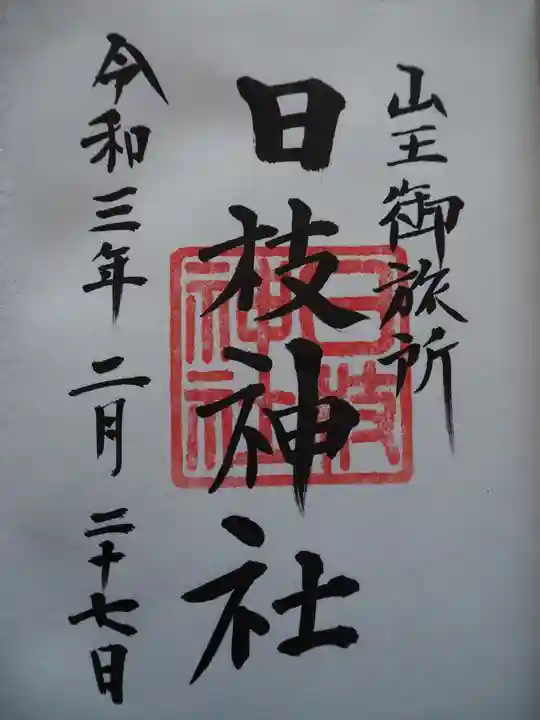 山王御旅所
日枝神社
日枝神社
令和三年二月二十七日